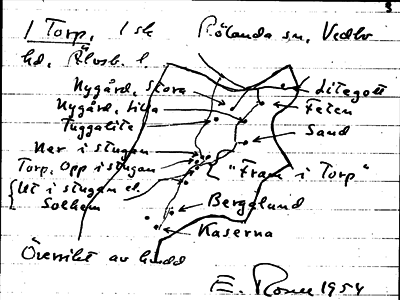 1 Torp, 1 sk Rölanda sn, Vedbo
hd, Älvsb. l.
Nygård, Stora
Litegott
Nygård, Lilla
Feten
Tuggalite
Sand
Ner i stugan
Torp, Opp i stugan
"Fram i Torp"
Ut i stugan el.
Solhem
Bergslund
Kaserna
Översikt av
E. 1954